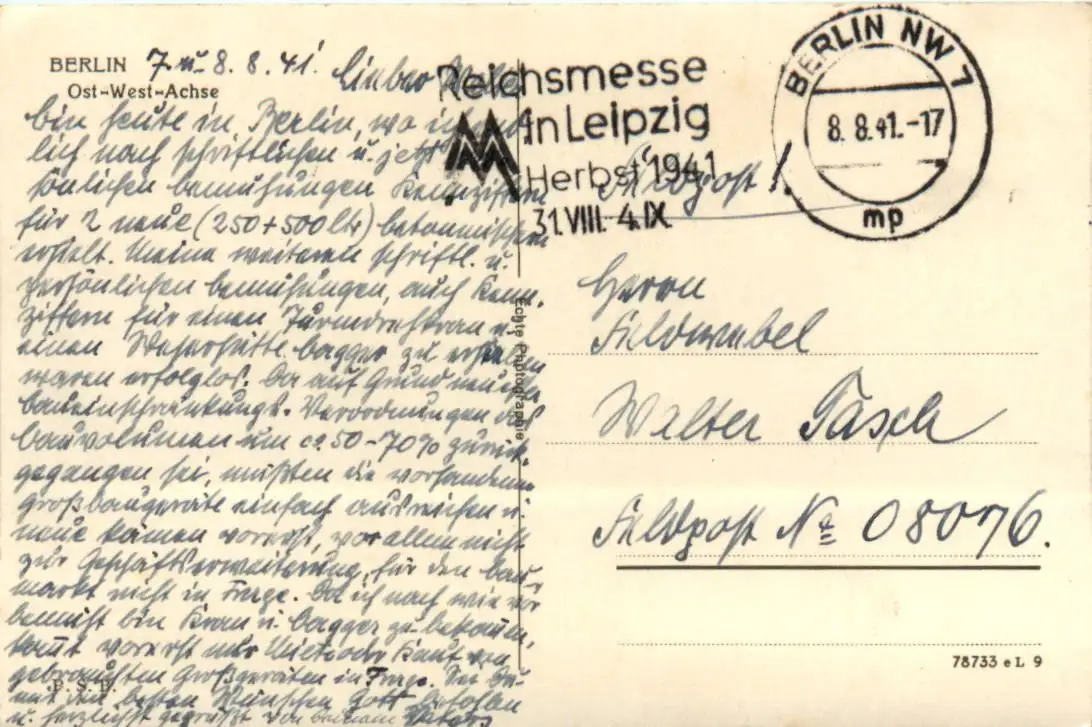 BERLIN
Ost-West-Achse
7. u. 8. 8. 41. Lieber
bin heute in Berlin, wo ich
lich nach schriftlichen u. jetzt
sönlichen bemühungen Kennziffern
für 2 neue (250+500 ltr) betonmischer
erhielt. Meine weiteren schriftl. u.
persönlichen bemühungen, auch Kenn-
ziffern für einen Turmdrehkran u.
einen Weserhütte bagger zu erhalten
waren erfolglos. Da auf Grund neuer
baueinschränkungs-Verordnungen das
bauvolumen um ca. 50-70% zurück-
gegangen sei, müßten die vorhandenen
Großbaugeräte einfach ausreichen u.
neue kämen vorerst, vor allem nicht
zur Geschäftserweiterung, für den bau-
markt nicht in Frage. Da ich nach wie vor
bemüht bin Kran u. bagger zu bekom-
vorerst nur Miete oder Kauf von
gebrauchten Großgeräten in Frage.
mit den besten Wünschen Gott befohlen
u. herzlichst gegrüßt von deinem
P.S.P.
Echte Photographie
Reichsmesse
in Leipzig
Herbst 1941
31.VIII.-4.IX.
BERLIN NW 7
8.8.41.-17
mp
Feldpost!
Herrn
Feldwebel
Walter Täsch
Feldpost Nr. 08076.
78733 e L 9